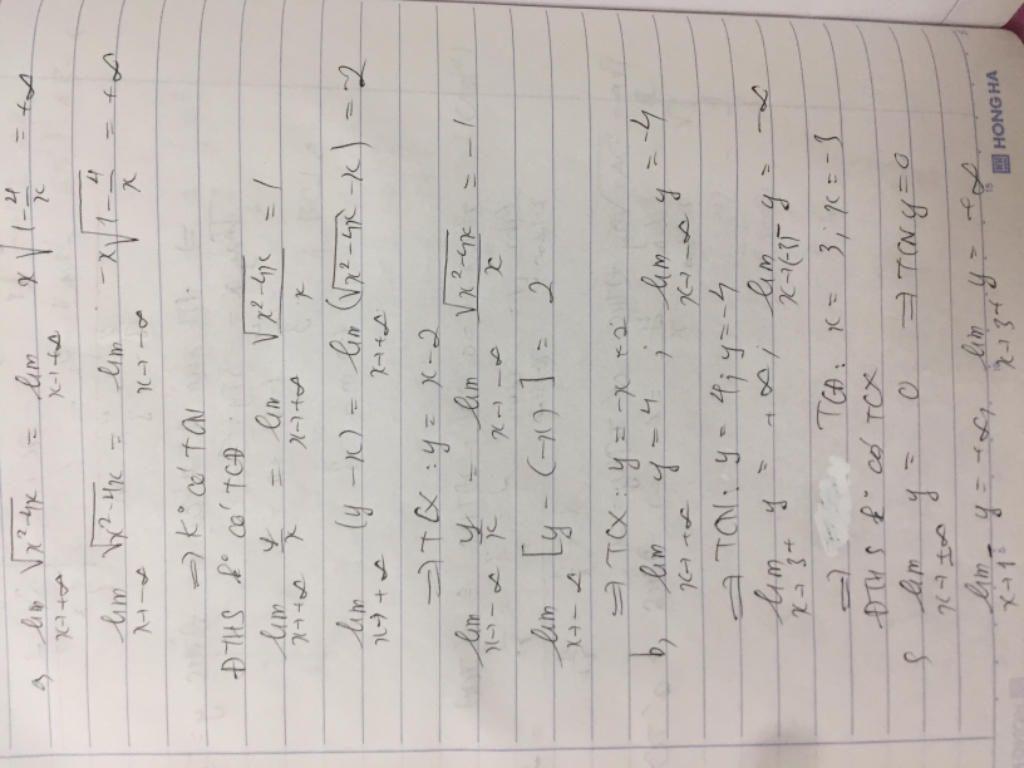 a, lim x→+∞ √(x²-4x) = lim x→+∞ x√(1-4/x) = +∞
lim x→-∞ √(x²-4x) = lim x→-∞ -x√(1-4/x) = +∞
⇒ K° có TCN
ĐTHS k° có TCĐ
lim x→+∞ y/x = lim x→+∞ √(x²-4x)/x = 1
lim x→+∞ (y-x) = lim x→+∞ (√(x²-4x)-x) = -2
⇒ TCX: y = x-2
lim x→-∞ y/x = lim x→-∞ √(x²-4x)/x = -1
lim x→-∞ [y-(-x)] = 2
⇒ TCX: y = -x+2
b, lim x→+∞ y = 4, lim x→-∞ y = -4
⇒ TCN: y = 4; y = -4
lim x→3+ y = +∞, lim x→(-3)- y = -∞
⇒ TCĐ: x = 3; x = -3
ĐTHS k° có TCX
lim x→±∞ y = 0 ⇒ TCN y=0
lim x→1- y = -∞, lim x→3+ y = +∞
HONG HA